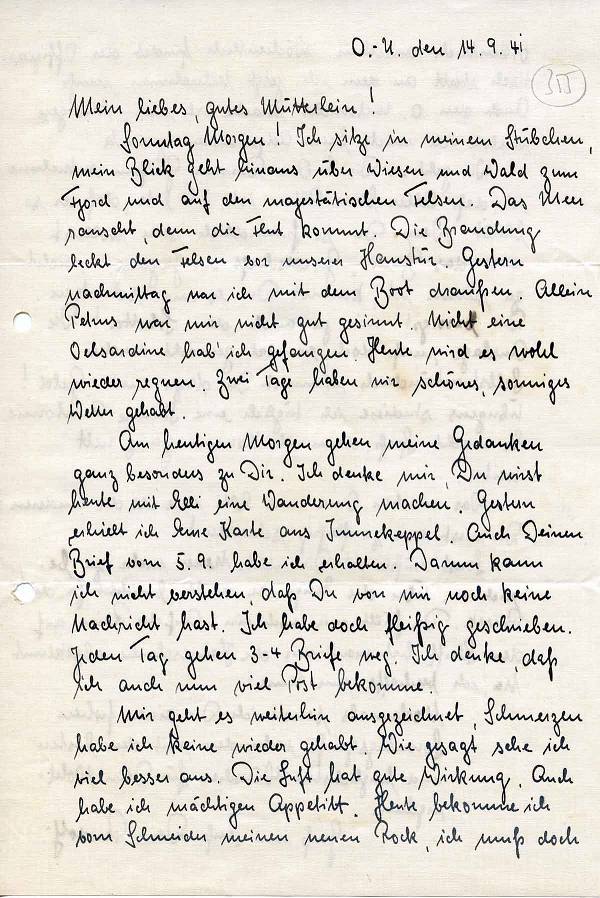 O.-U. den 14.9.41
355
Mein liebes, gutes Mütterlein!
Sonntag Morgen! Ich sitze in meinem Stübchen,
mein Blick geht hinaus über Wiesen und Wald zum
Fjord und auf den majestätischen Felsen. Das Meer
rauscht, denn die Flut kommt. Die Brandung
leckt den Felsen vor unserer Haustür. Gestern
nachmittag war ich mit dem Boot draußen. Allein
Petrus war mir nicht gut gesinnt. Nicht eine
Oelsardine hab' ich gefangen. Heute wird es wohl
wieder regnen. Zwei Tage haben wir schönes, sonniges
Wetter gehabt.
Am heutigen Morgen gehen meine Gedanken
ganz besonders zu Dir. Ich denke mir, Du wirst
heute mit Elli eine Wanderung machen. Gestern
erhielt ich Eure Karte aus Immekeppel. Auch Deinen
Brief vom 5.9. habe ich erhalten. Darum kann
ich nicht verstehen, daß Du von mir noch keine
Nachricht hast. Ich habe doch fleißig geschrieben.
Jeden Tag gehen 3-4 Briefe weg. Ich denke, daß
ich auch nun viel Post bekomme.
Mir geht es weiterhin ausgezeichnet, Schmerzen
habe ich keine wieder gehabt. Wie gesagt sehe ich
viel besser aus. Die Luft hat gute Wirkung. Auch
habe ich mächtigen Appetitt. Heute bekomme ich
vom Schneider meinen neuen Rock, ich muß doch